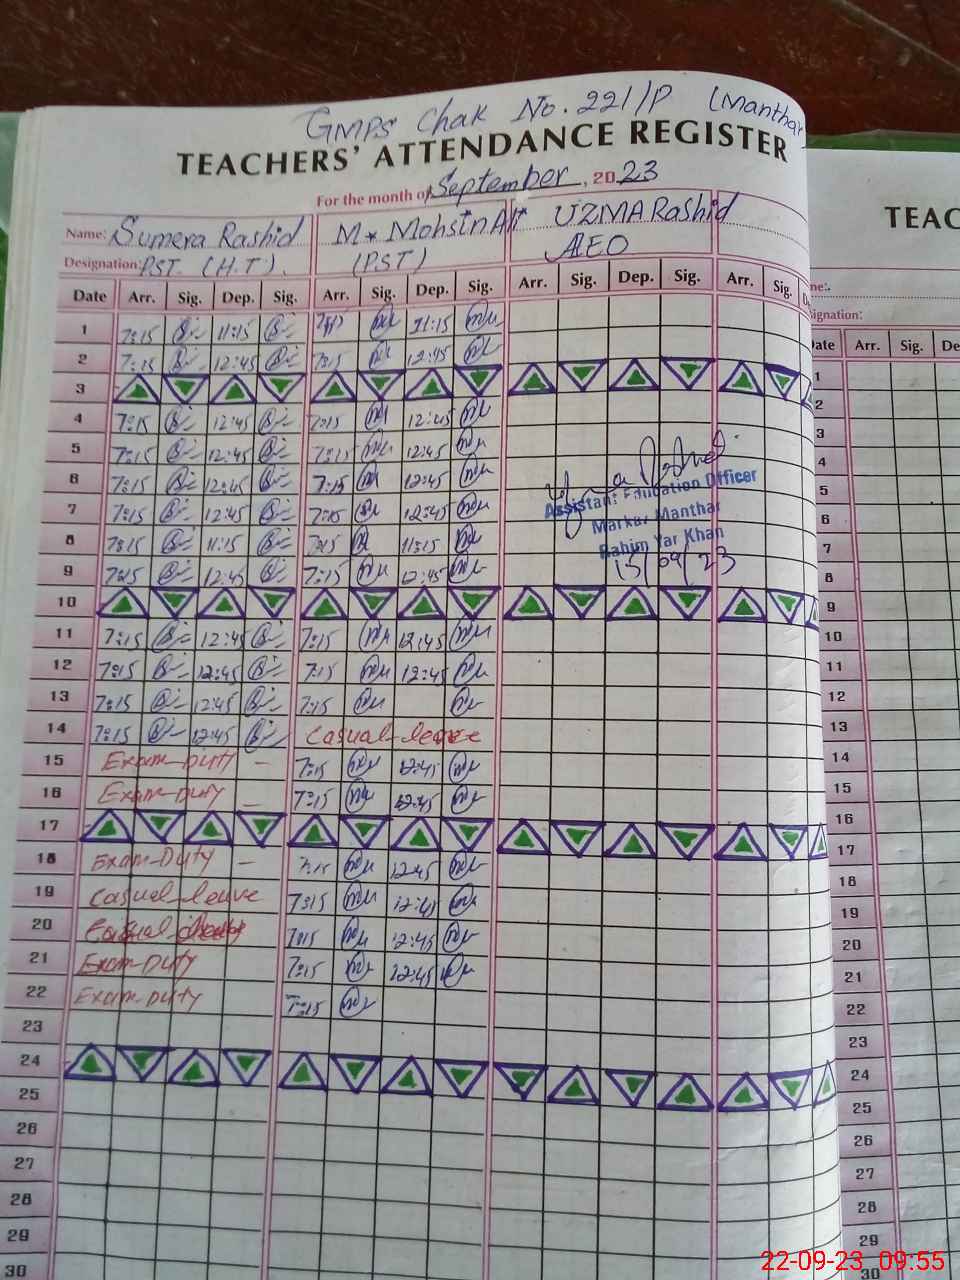 GMPS Chak No. 221/P (Manthar
TEACHERS' ATTENDANCE REGISTER
For the month of September, 2023
Name: Sumera Rashid M* Mohsin Ali* UZMA Rashid
Designation: PST. (H.T). (PST) AEO
Date Arr. Sig. Dep. Sig. Arr. Sig. Dep. Sig. Arr. Sig. Dep. Sig. Arr. Sig.
1 7:15 11:15 11:15
2 7:15 12:45 7:15 12:45
3
4 7:15 12:45 7:15 12:45
5 7:15 12:45 7:15 12:45
6 7:15 12:45 7:15 12:45
7 7:15 12:45 7:15 12:45
8 7:15 11:15 7:15 11:15
9 7:15 12:45 7:15 12:45
Assistant Education Officer
Markaz Manthar
Rahim Yar Khan
15/09/23
10
11 7:15 12:45 7:15 12:45
12 7:15 12:45 7:15 12:45
13 7:15 12:45 7:15
14 7:15 12:45 Casual-leave
15 Exam-Duty - 7:15 12:45
16 Exam-Duty - 7:15 12:45
17
18 Exam-Duty - 7:15 12:45
19 Casual-leave 7:15 12:45
20 Casual 7:15 12:45
21 Exam-Duty 7:15 12:45
22 Exam-Duty 7:15
23
24
25
26
27
28
29
30
TEAC
me:
signation:
Date Arr. Sig. De
1
2
3
4
5
6
7
8
9
10
11
12
13
14
15
16
17
18
19
20
21
22
23
24
25
26
27
28
29
30
22-09-23 09:55